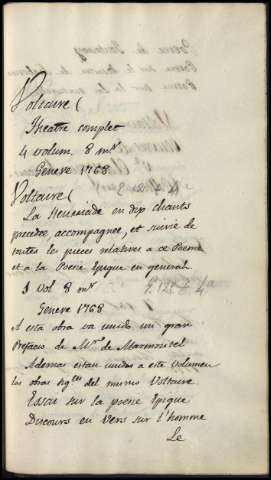 Voltaire (
Theatre complet
4 volum. 8 m.r
Geneve 1768
Voltaire (
La Henriade en dix chants
precedée accompagnée, et suivie de
toutes les pieces relatives a ce Poeme
et a la Poesie Epique en general.
1 Vol 8 m.r
Geneve 1768
A esta obra va unido un gran
Prefacio de M.r de Marmontel
Ademas estan unidas a este volumen
las obras sig.tes del mismo Voltaire
Essai sur la poesie Epique
Discours en vers sur l'homme
Le